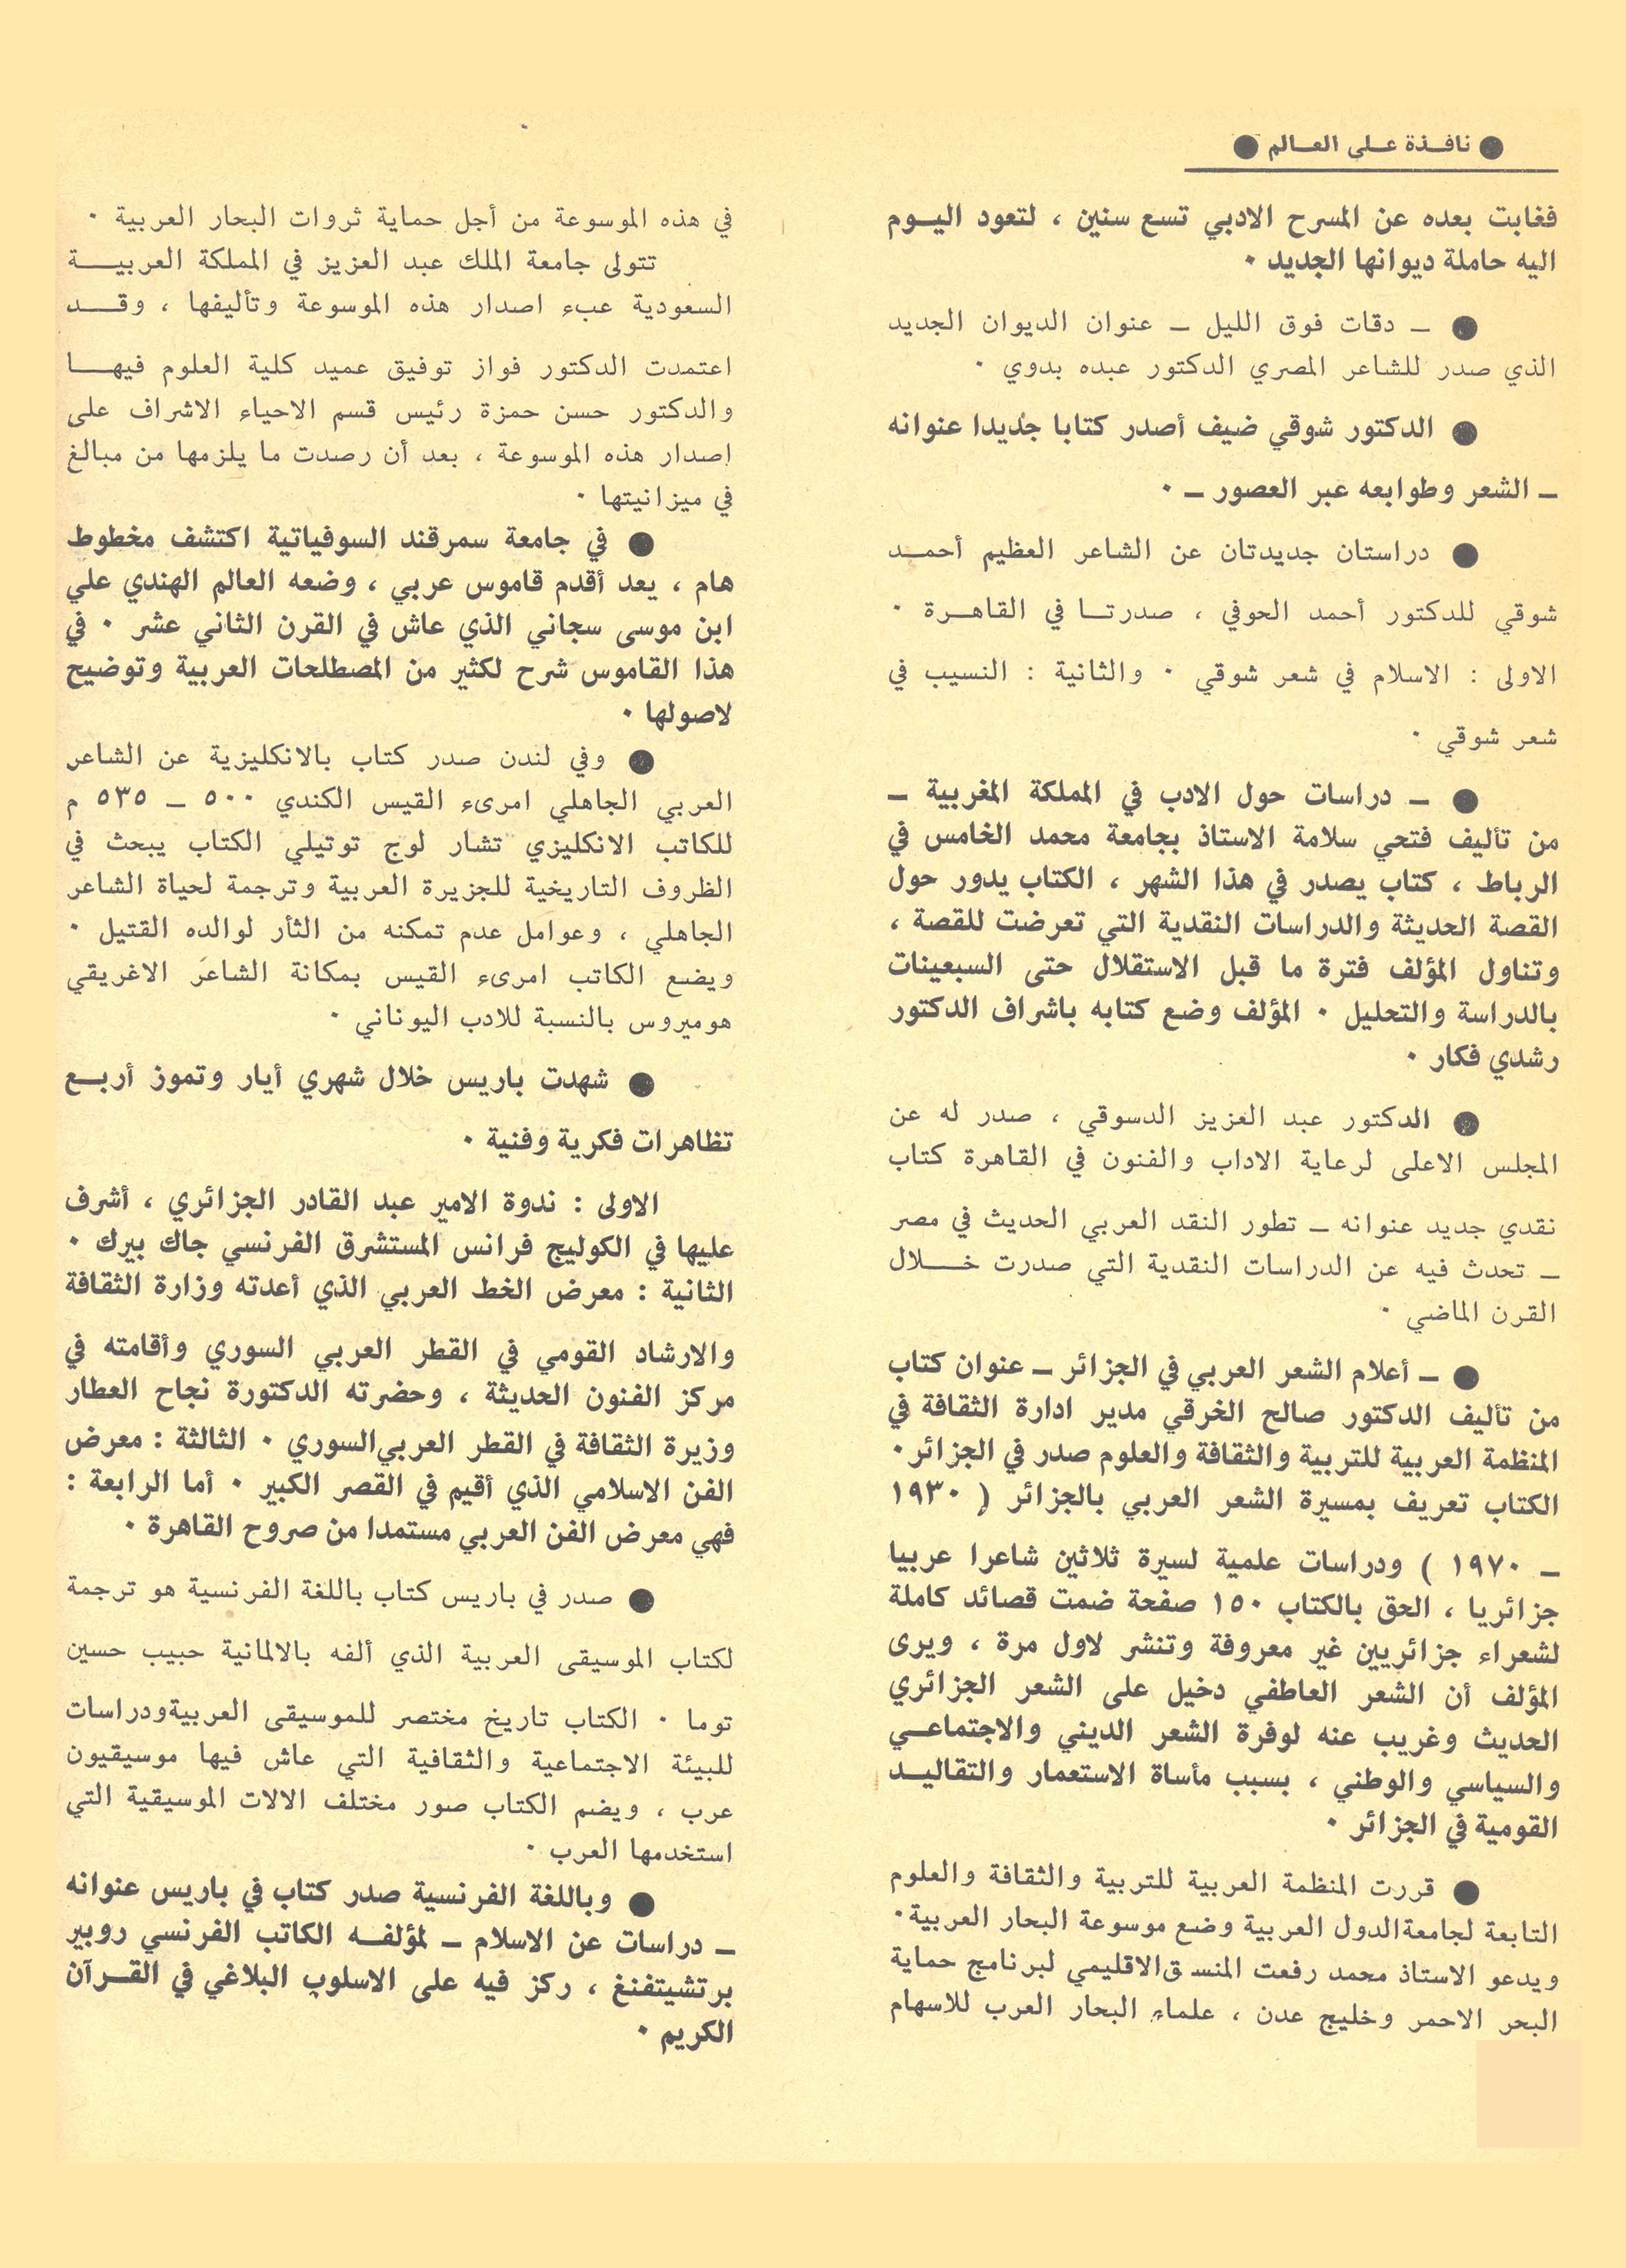 ● نافـذة عـلى العـالم ●
فغابت بعده عن المسرح الادبي تسع سنين ، لتعود اليـوم
اليه حاملة ديوانها الجديد ٠
● ـ دقات فوق الليل ـ عنوان الديوان الجديد
الذي صدر للشاعر المصري الدكتور عبده بدوي ٠
● الدكتور شوقي ضيف أصدر كتابا جديدا عنوانه
ـ الشعر وطوابعه عبر العصور ـ ٠
● دراستان جديدتان عن الشاعر العظيم أحمـد
شوقي للدكتور أحمد الحوفي ، صدرتـا في القاهـرة ٠
الاولى : الاسلام في شعر شوقي ٠ والثانية : النسيب في
شعر شوقي ٠
● ـ دراسات حول الادب في المملكة المغربية ـ
من تأليف فتحي سلامة الاستاذ بجامعة محمد الخامس في
الرباط ، كتاب يصدر في هذا الشهر ، الكتاب يدور حول
القصة الحديثة والدراسات النقدية التي تعرضت للقصة ،
وتناول المؤلف فترة ما قبل الاستقلال حتى السبعينات
بالدراسة والتحليل ٠ المؤلف وضع كتابه باشراف الدكتور
رشدي فكار ٠
● الدكتور عبد العزيز الدسوقي ، صدر له عن
المجلس الاعلى لرعاية الاداب والفنون في القاهرة كتاب
نقدي جديد عنوانه ـ تطور النقد العربي الحديث في مصر
ـ تحدث فيه عن الدراسات النقدية التي صدرت خـــلال
القرن الماضي ٠
● ـ أعلام الشعر العربي في الجزائر ـ عنوان كتاب
من تأليف الدكتور صالح الخرقي مدير ادارة الثقافة في
المنظمة العربية للتربية والثقافة والعلوم صدر في الجزائر ٠
الكتاب تعريف بمسيرة الشعر العربي بالجزائر ( ١٩٣٠
ـ ١٩٧٠ ) ودراسات علمية لسيرة ثلاثين شاعرا عربيا
جزائريا ، الحق بالكتاب ١٥٠ صفحة ضمت قصائد كاملة
لشعراء جزائريين غير معروفة وتنشر لاول مرة ، ويرى
المؤلف أن الشعر العاطفي دخيل على الشعر الجزائري
الحديث وغريب عنه لوفرة الشعر الديني والاجتماعـي
والسياسي والوطني ، بسبب مأساة الاستعمار والتقاليـد
القومية في الجزائر ٠
● قررت المنظمة العربية للتربية والثقافة والعلوم
التابعة لجامعة الدول العربية وضع موسوعة البحار العربية ٠
ويدعو الاستاذ محمد رفعت المنسق الاقليمي لبرنامج حماية
البحر الاحمر وخليج عدن ، علماء البحار العرب للاسهام
في هذه الموسوعة من أجل حماية ثروات البحار العربية ٠
تتولى جامعة الملك عبد العزيز في المملكة العربيــة
السعودية عبء اصدار هذه الموسوعة وتأليفها ، وقــد
اعتمدت الدكتور فواز توفيق عميد كلية العلوم فيهــا
والدكتور حسن حمزة رئيس قسم الاحياء الاشراف على
اصدار هذه الموسوعة ، بعد أن رصدت ما يلزمها من مبالغ
في ميزانيتها ٠
● في جامعة سمرقند السوفياتية اكتشف مخطوط
هام ، يعد أقدم قاموس عربي ، وضعه العالم الهندي علي
ابن موسى سجاني الذي عاش في القرن الثاني عشر ٠ في
هذا القاموس شرح لكثير من المصطلحات العربية وتوضيح
لاصولها ٠
● وفي لندن صدر كتاب بالانكليزية عن الشاعر
العربي الجاهلي امرىء القيس الكندي ٥٠٠ ـ ٥٣٥ م
للكاتب الانكليزي تشار لوج توتيلي الكتاب يبحث في
الظروف التاريخية للجزيرة العربية وترجمة لحياة الشاعر
الجاهلي ، وعوامل عدم تمكنه من الثأر لوالده القتيل ٠
ويضع الكاتب امرىء القيس بمكانة الشاعر الاغريقي
هوميروس بالنسبة للادب اليوناني ٠
● شهدت باريس خلال شهري أيار وتموز أربـع
تظاهرات فكرية وفنية ٠
الاولى : ندوة الامير عبد القادر الجزائري ، أشرف
عليها في الكوليج فرانس المستشرق الفرنسي جاك بيرك ٠
الثانية : معرض الخط العربي الذي أعدته وزارة الثقافة
والارشاد القومي في القطر العربي السوري وأقامته في
مركز الفنون الحديثة ، وحضرته الدكتورة نجاح العطار
وزيرة الثقافة في القطر العربي السوري ٠ الثالثة : معرض
الفن الاسلامي الذي أقيم في القصر الكبير ٠ أما الرابعة :
فهي معرض الفن العربي مستمدا من صروح القاهرة ٠
● صدر في باريس كتاب باللغة الفرنسية هو ترجمة
لكتاب الموسيقى العربية الذي ألفه بالالمانية حبيب حسين
توما ٠ الكتاب تاريخ مختصر للموسيقى العربية ودراسات
للبيئة الاجتماعية والثقافية التي عاش فيها موسيقيون
عرب ، ويضم الكتاب صور مختلف الالات الموسيقية التي
استخدمها العرب ٠
● وباللغة الفرنسية صدر كتاب في باريس عنوانه
ـ دراسات عن الاسلام ـ لمؤلفـه الكاتب الفرنسي روبير
برتشيتفنغ ، ركز فيه على الاسلوب البلاغي في القـرآن
الكريم ٠